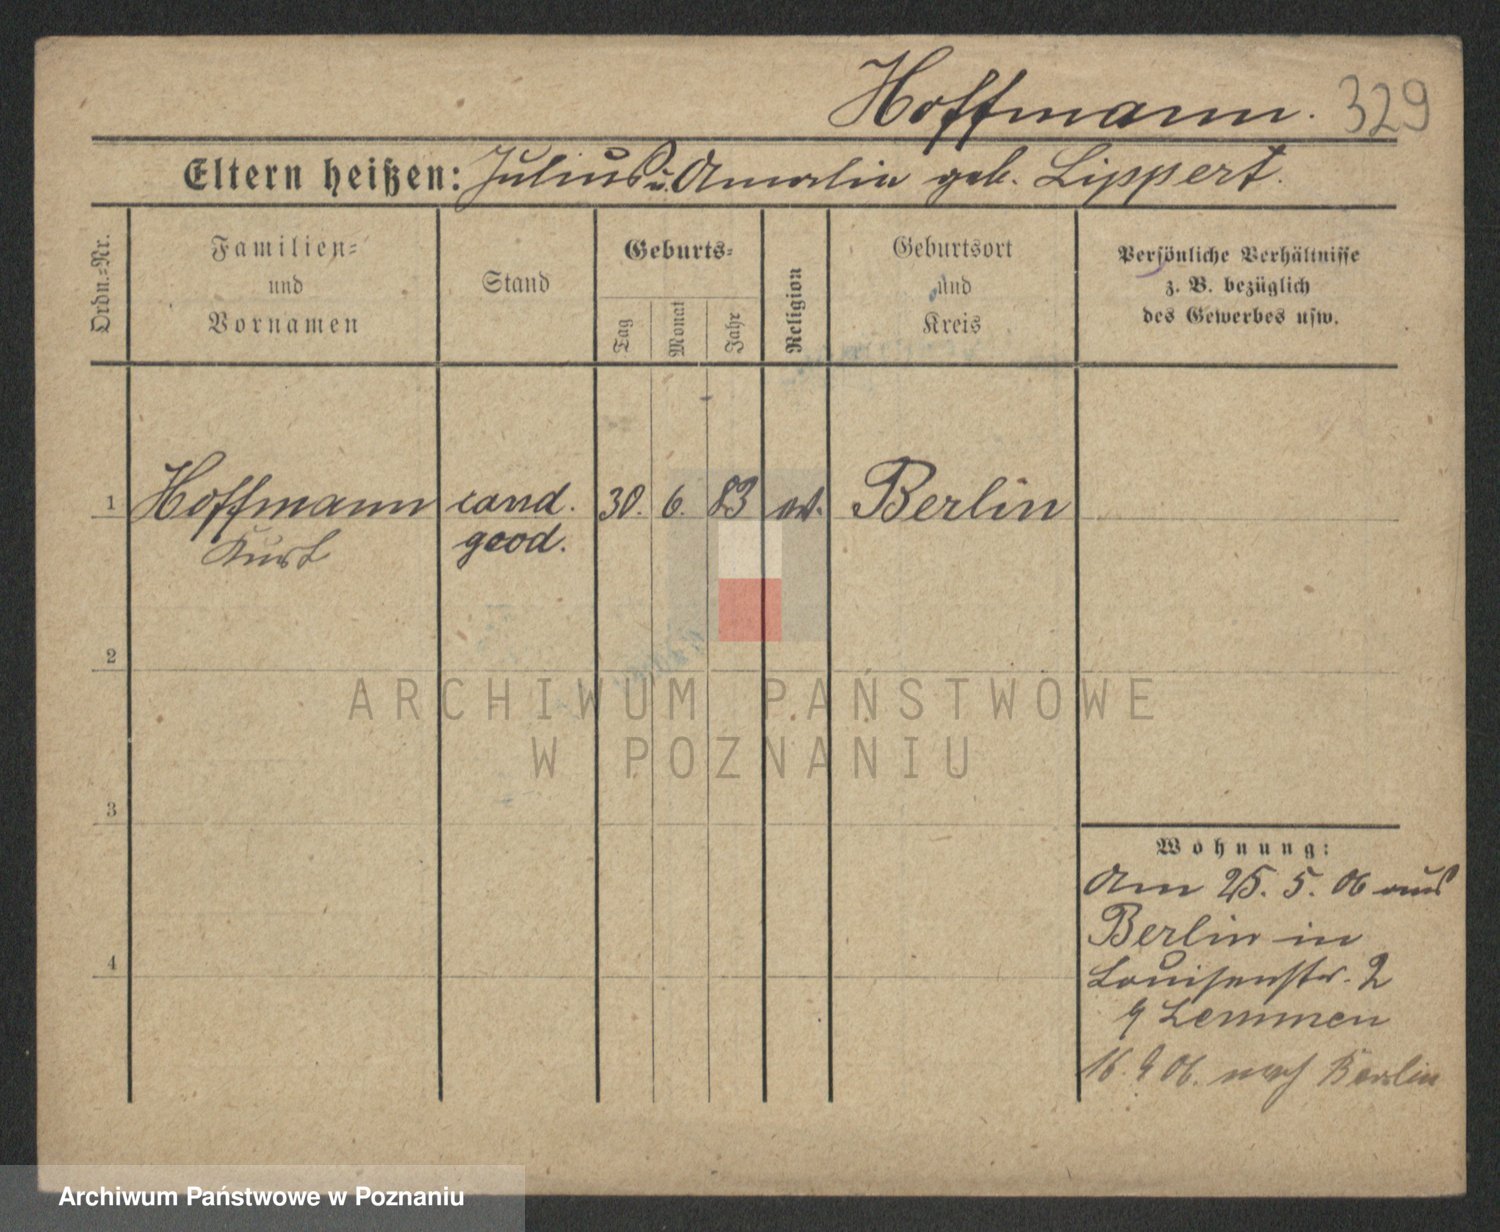 Hoffmann. 329
Eltern heißen: Julius u. Amalie geb. Lippert.
Ordn.-Nr.
Familien-
und
Vornamen
Stand
Geburts-
Tag
Monat
Jahr
Religion
Geburtsort
und
Kreis
Persönliche Verhältnisse
z. B. bezüglich
des Gewerbes usw.
1 Hoffmann cand. 30. 6. 83 ev. Berlin
Kurt geod.
2
3
4
Wohnung:
Am 25. 5. 06 aus
Berlin in
Louisenstr. 2
Lemmen
16. 9 06. nach Berlin
ARCHIWUM PAŃSTWOWE
W POZNANIU
Archiwum Państwowe w Poznaniu